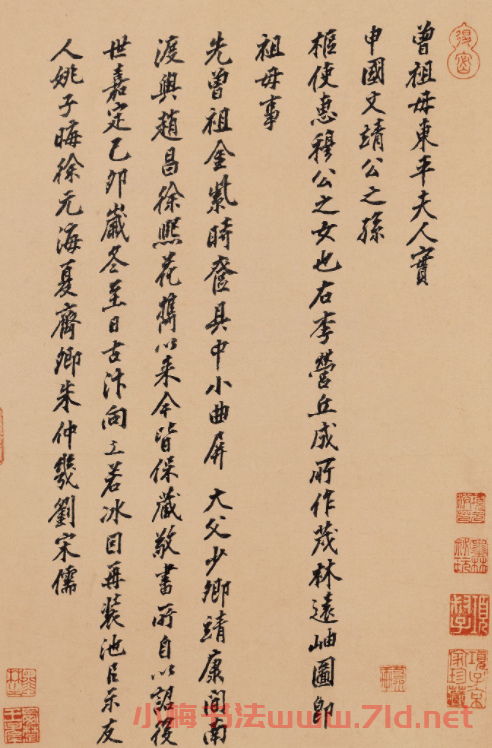 曾祖母東平夫人實
申國文靖公之孫
樞使惠穆公之女也右李營丘成所作茂林遠岫圖即
祖母事
先曾祖金紫時奩具中小曲屏 大父少卿靖康間南
渡與趙昌徐熙花攜以來今皆保藏敬書所自以詔後
世嘉定己卯歲冬至日古汴向若冰因再裝池㠯示友
人姚子晦徐元海夏齊卿朱仲幾劉宋儒
小梅书法www.7ld.net